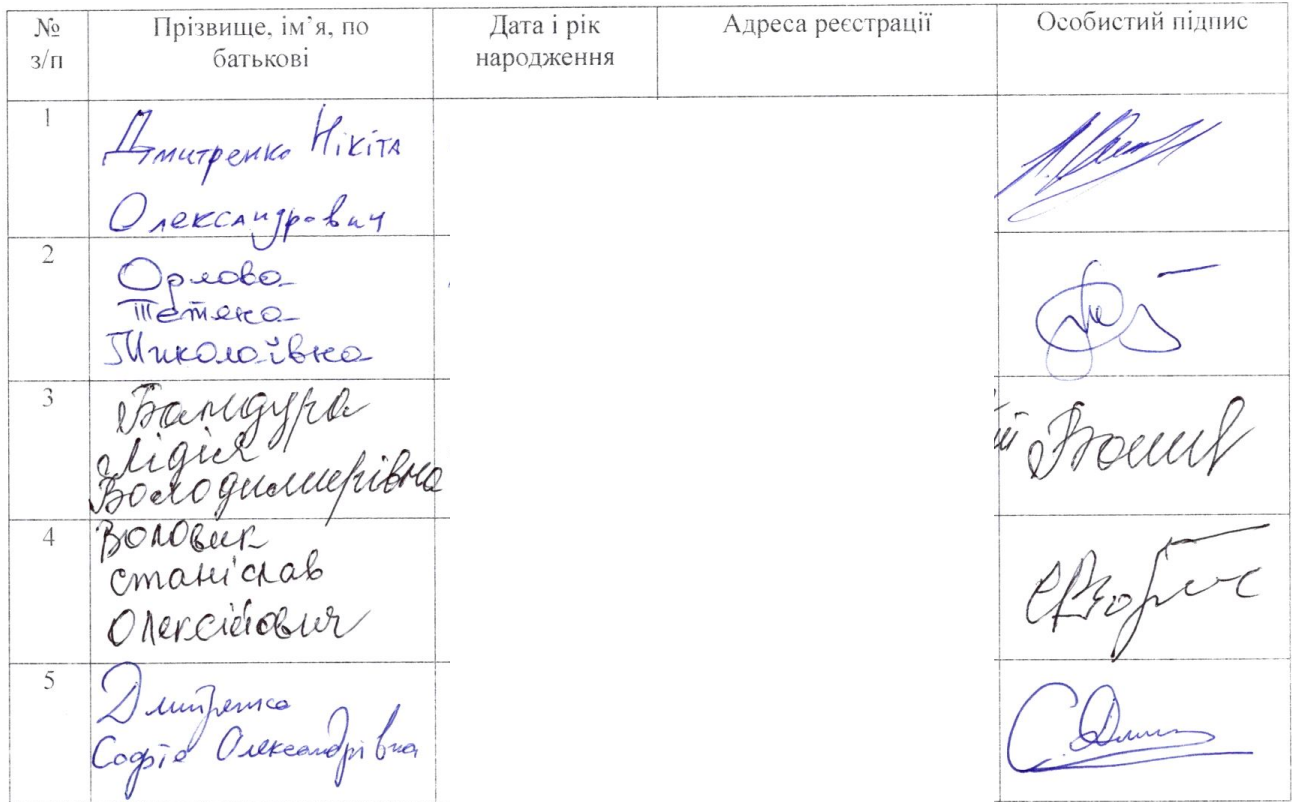 № з/п
Прізвище, ім’я, по батькові
Дата і рік народження
Адреса реєстрації
Особистий підпис
1
Дмитренко Нікіта
Олександрович
2
Орлова
Тетяна
Миколаївна
3
Бандура
Лідія
Володимирівна
4
Воловик
Станіслав
Олексійович
5
Дмитренко
Софія Олександрівна